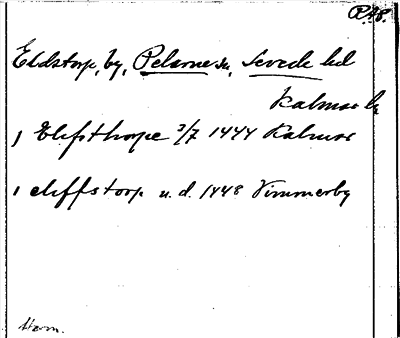 P. 48.
Eldstorp, by, Pelarne sn, Sevede hd
Kalmar l.
i Elifsthorpe 3/7 1444 Kalmar
i eliffstorp u. d. 1448 Vimmerby
Harm.